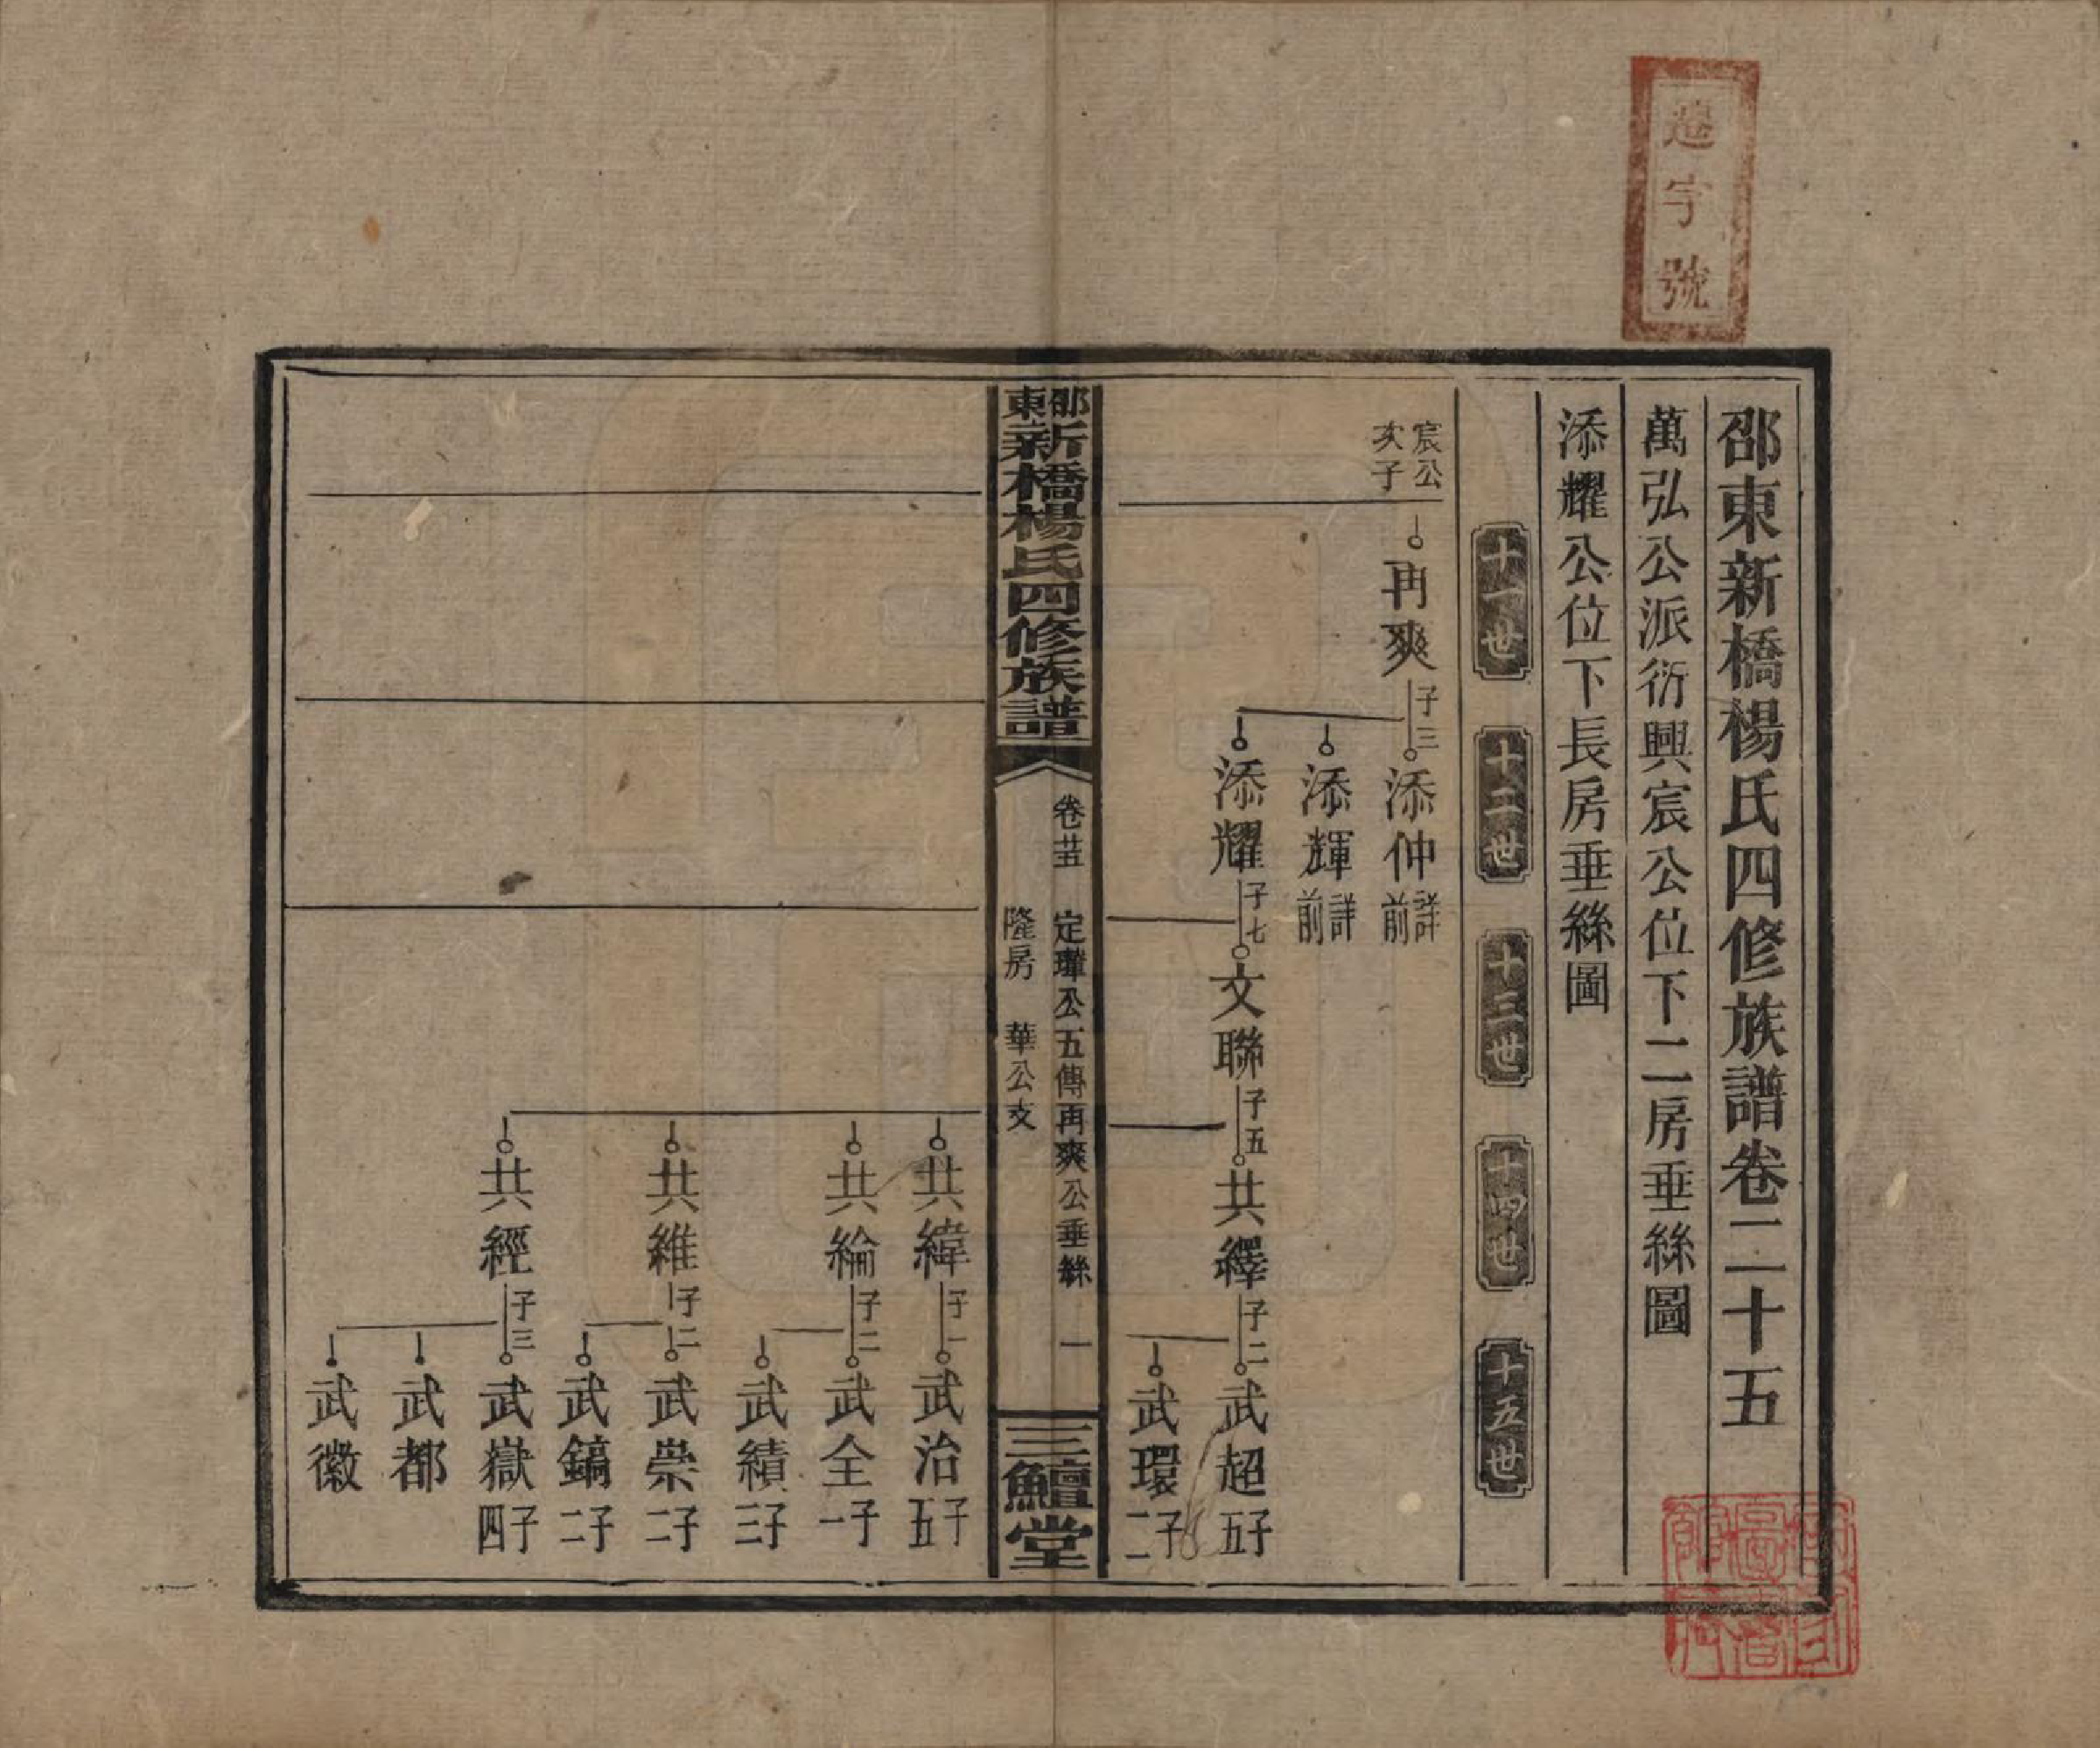 邵東新橋楊氏四修族譜卷二十五
萬弘公派衍興宸公位下二房垂絲圖
添耀公位下長房垂絲圖
十一世
十二世
十三世
十四世
十五世
宸公
次子
再爽
子三
添仲
詳前
添輝
詳前
添耀
子七
文聯
子五
共繹
子二
武超
子五
武環
子二
邵東新橋楊氏四修族譜
卷廿五
定瓊公五傳再爽公垂絲
隆房 華公支
一
三鱣堂
共緯
子一
武治
子五
共綸
子二
武全
子一
武績
子三
共維
子二
武崇
子二
武鎬
子二
共經
子三
武嶽
子四
武都
武徽
字號